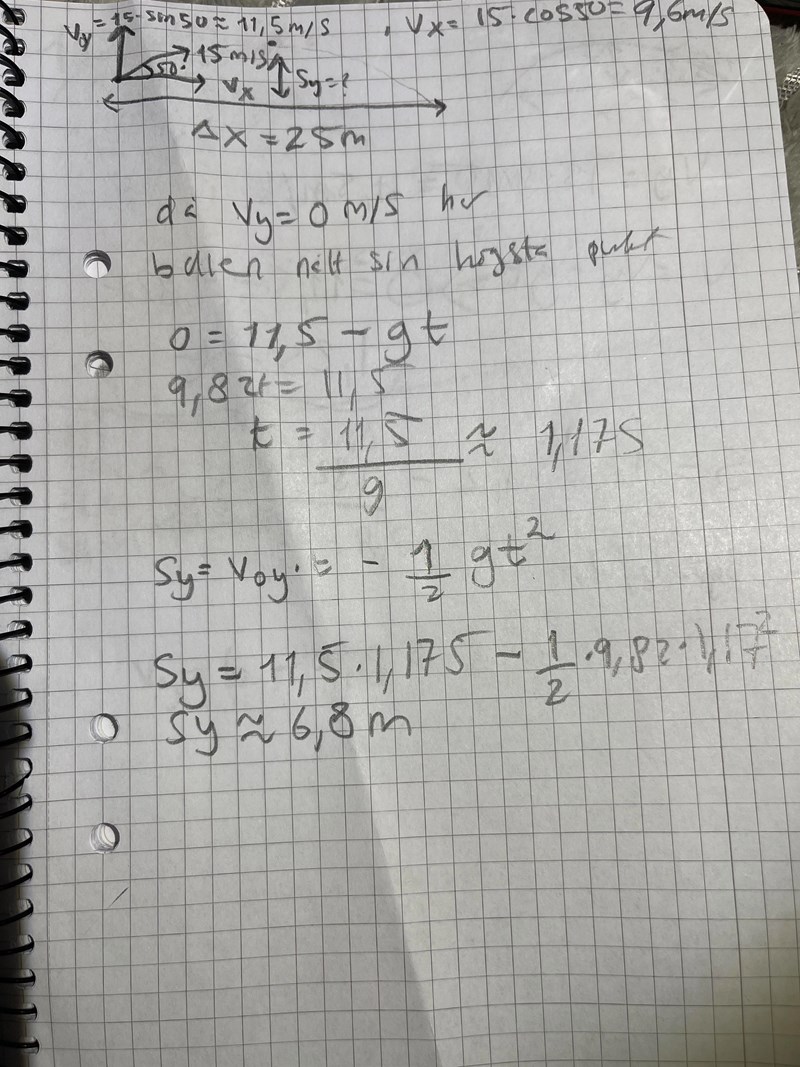 Vy = 15 · sin50 ≈ 11,5 m/s , Vx = 15 · cos50 = 9,6 m/s
15 m/s
50°
Vx
Sy = ?
Δx = 25 m
då Vy = 0 m/s hr
bollen nått sin högsta punkt
0 = 11,5 - gt
9,82t = 11,5
t = 11,5/g ≈ 1,17s
Sy = Voy · = - 1/2 gt²
Sy = 11,5 · 1,175 - 1/2 · 9,82 · 1,17²
Sy ≈ 6,8 m